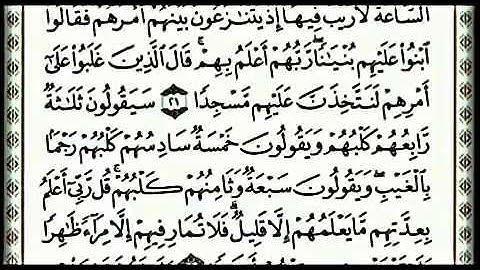 ٱلسَّاعَةَ لَا رَيْبَ فِيهَآ إِذْ يَتَنَٰزَعُونَ بَيْنَهُمْ أَمْرَهُمْ ۖ فَقَالُوا۟
ٱبْنُوا۟ عَلَيْهِم بُنْيَٰنًا ۖ رَّبُّهُمْ أَعْلَمُ بِهِمْ ۚ قَالَ ٱلَّذِينَ غَلَبُوا۟ عَلَىٰٓ
أَمْرِهِمْ لَنَتَّخِذَنَّ عَلَيْهِم مَّسْجِدًا ٢١ سَيَقُولُونَ ثَلَٰثَةٌ
رَّابِعُهُمْ كَلْبُهُمْ وَيَقُولُونَ خَمْسَةٌ سَادِسُهُمْ كَلْبُهُمْ رَجْمًۢا
بِٱلْغَيْبِ ۖ وَيَقُولُونَ سَبْعَةٌ وَثَامِنُهُمْ كَلْبُهُمْ ۚ قُل رَّبِّىٓ أَعْلَمُ
بِعِدَّتِهِم مَّا يَعْلَمُهُمْ إِلَّا قَلِيلٌ ۗ فَلَا تُمَارِ فِيهِمْ إِلَّا مِرَآءً ظَٰهِرًا